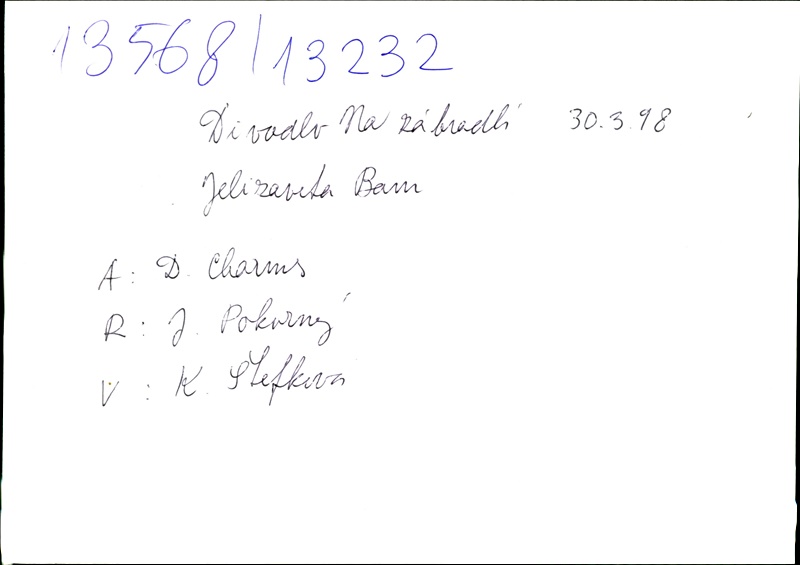 13568/13232
Divadlo Na zábradlí 30.3.98
Jelizaveta Bam
A: D. Charms
R: J. Pokorný
V: K. Štefková